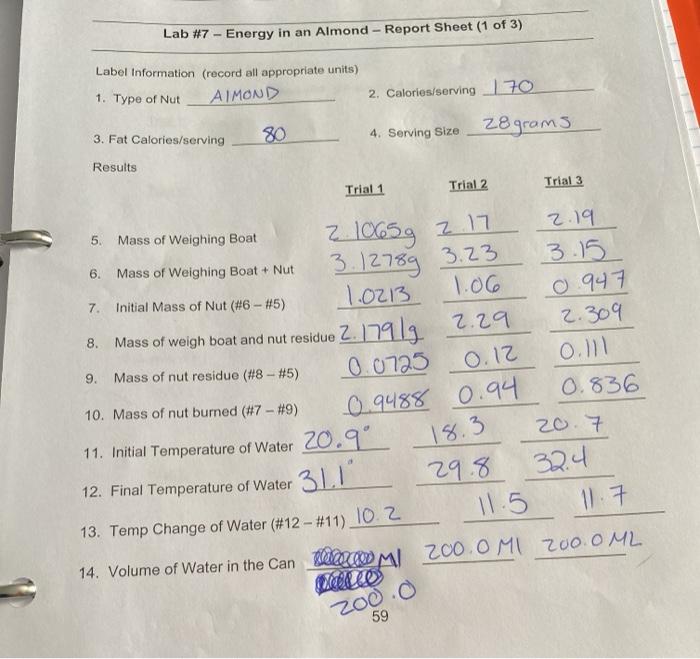 Lab #7 – Energy in an Almond – Report Sheet (1 of 3)
Label Information (record all appropriate units)
1. Type of Nut AlMOND 2. Calories/serving 170
3. Fat Calories/serving 80 4. Serving Size 28 grams
Results
Trial 1 Trial 2 Trial 3
5. Mass of Weighing Boat 2.1065g 2.17 2.19
6. Mass of Weighing Boat + Nut 3.1278g 3.23 3.15
7. Initial Mass of Nut (#6 – #5) 1.0213 1.06 0.947
8. Mass of weigh boat and nut residue 2.1791g 2.29 2.309
9. Mass of nut residue (#8 – #5) 0.0725 0.12 0.111
10. Mass of nut burned (#7 – #9) 0.9488 0.94 0.836
11. Initial Temperature of Water 20.9° 18.3 20.7
12. Final Temperature of Water 31.1° 29.8 32.4
13. Temp Change of Water (#12 – #11) 10.2 11.5 11.7
14. Volume of Water in the Can Ml 200.0 Ml 200.0 ML
200.0
59